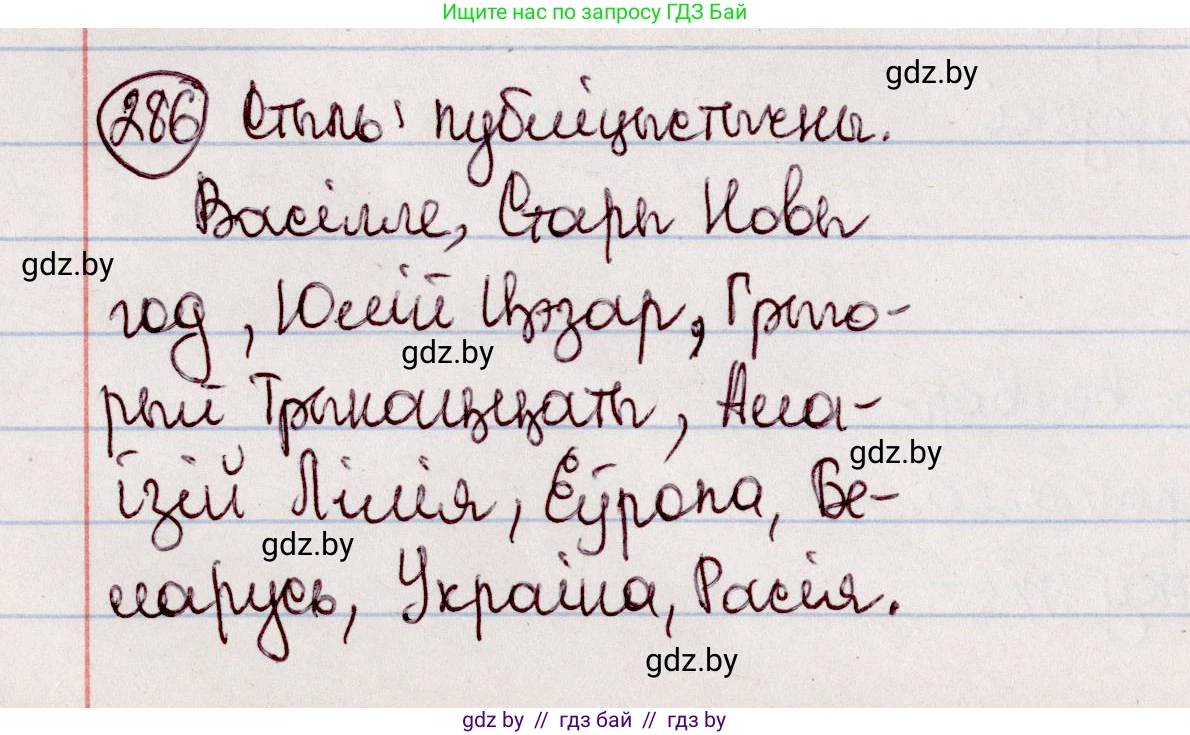 Ищите нас по запросу ГДЗ Бай
gdz.by
286 Стыль: публіцыстычны.
Васілле, Стары Новы
gdz.by
год, Юлій Цэзар, Грыго-
gdz.by
рый Трынаццаты, Ала-
gdz.by
ізій Лілія, Еўропа, Бе-
gdz.by
ларусь, Украіна, Расія.
gdz.by
gdz by // гдз бай // гдз by